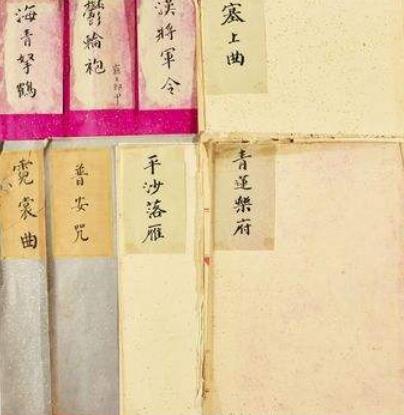 塞上曲
漢將軍令
鬱輪袍
霸王卸甲
海青拏鶴
青蓮樂府
平沙落雁
普安呪
霓裳曲